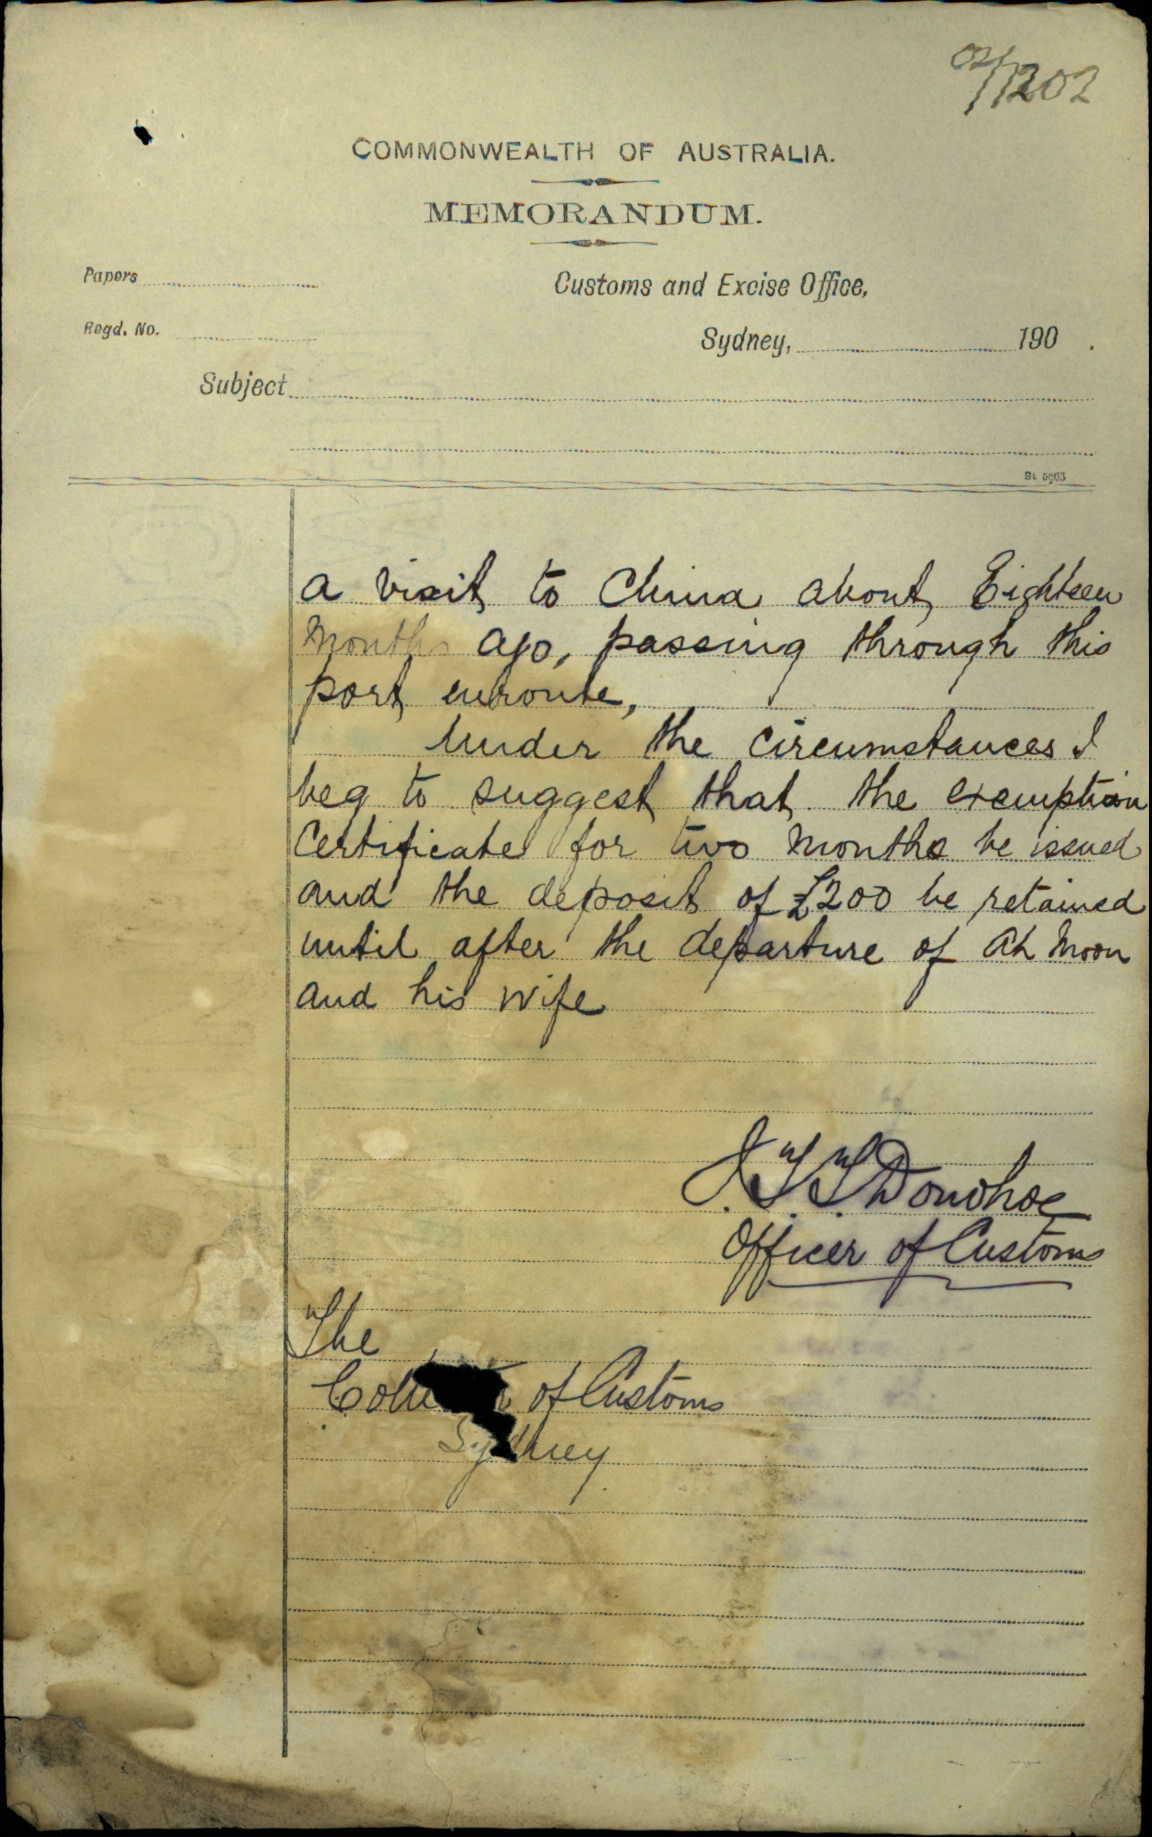 02/1202
COMMONWEALTH OF AUSTRALIA.
MEMORANDUM.
Papers
Customs and Excise Office,
Regd. No.
Sydney, 190 .
Subject
St 5963
a visit to China about Eighteen
Months ago, passing through this
port enroute,
Under the circumstances I
beg to suggest that the exemption
Certificate for two Months be issued
and the deposit of £200 be retained
until after the departure of Ah Moon
and his wife
J. T. T. Donohoe
Officer of Customs
The
of Customs
Sydney